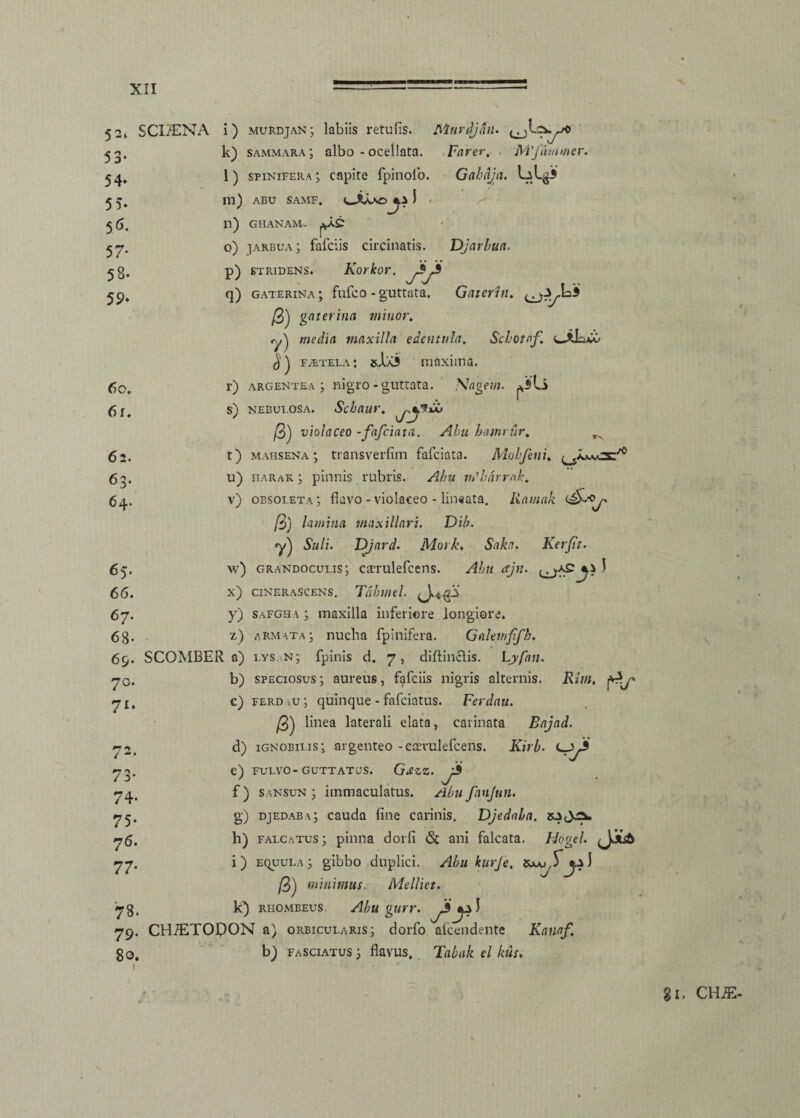 XII
52. SCIÆNA i) MURDJAN; labiis retuſis. Murdjân. مرجان
53. k) SAMMARA; albo-ocellata. Farer. M'ſammer.
54. l) SPINIFERA; capite ſpinoſo. Gahâja.
55. m) ABU SAMF.
56. n) GHANAM. غنم
57. o) JARBUA; faſciis circinatis. Djarbua.
58. p) STRIDENS. Korkor. قرقر
59. q) GATERINA; fuſco-guttata. Gaterîn. قطرين
β) gaterina minor.
γ) media maxilla edentula. Schotaf. شطف
δ) FÆTELA: maxima.
60. r) ARGENTEA; nigro-guttata. Nagem. ناقم
61. s) NEBULOSA. Schaur.
β) violaceo-faſciata. Abu hamrûr.
62. t) MAHSENA; transverſim faſciata. Mohſeni. محسني
63. u) HARAK; pinnis rubris. Abu m'hárrak.
64. v) OBSOLETA; flavo-violaceo-lineata. Ramak
β) lamina maxillari. Dib.
γ) Suli. Djard. Mork. Saka. Kerſit.
65. w) GRANDOCULIS; cærulefcens. Abu æjn. ابو عين
66. x) CINERASCENS. Tåhmel.
67. y) SAFGHA; maxilla inferiore longiore.
68. z) ARMATA; nucha ſpinifera. Galemfiſh.
69. SCOMBER a) LYSAN; ſpinis d. 7, diſtinctis. Lyſan.
70. b) SPECIOSUS; aureus, faſciis nigris alternis. Rîm. ريم
71. c) FERDAU; quinque-faſciatus. Ferdau.
β) linea laterali elata, carinata Bajad.
72. d) IGNOBILIS; argenteo-cærulefcens. Kirb. قرب
73. e) FULVO-GUTTATUS. Gæzz. قز
74. f) SANSUN; immaculatus. Abu ſanſun.
75. g) DJEDABA; cauda ſine carinis. Djedaba. جدبه
76. h) FALCATUS; pinna dorſi & ani falcata. Hogel.
77. i) EQUULA; gibbo duplici. Abu kurſe.
β) minimus. Melliet.
78. k) RHOMBEUS Abu gurr. ابو قر
79. CHÆTODON a) ORBICULARIS; dorſo aſcendente Kanaf.
80. b) FASCIATUS; flavus. Tabak el kûs.
81. CHÆ-